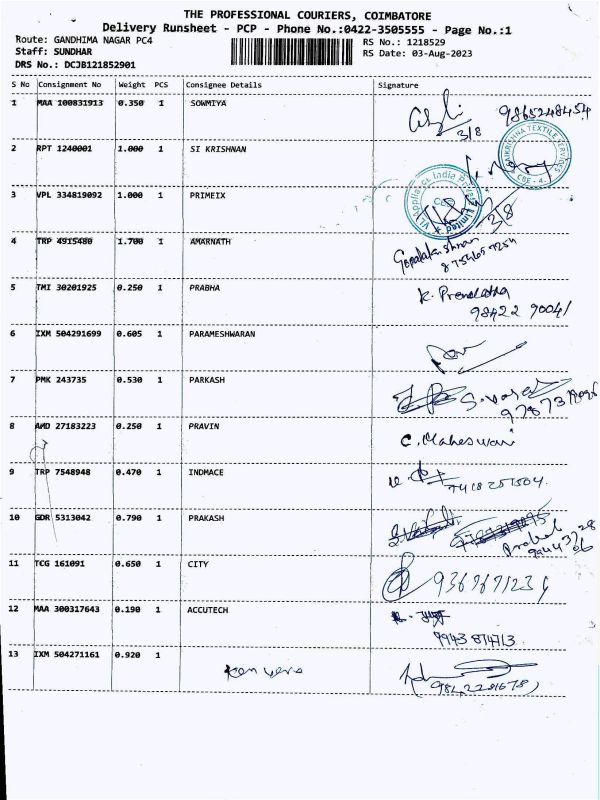 THE PROFESSIONAL COURIERS, COIMBATORE
Delivery Runsheet - PCP - Phone No.:0422-3505555 - Page No.:1
Route: GANDHIMA NAGAR PC4
RS No.: 1218529
Staff: SUNDHAR
RS Date: 03-Aug-2023
DRS No.: DCJB121852901
S No Consignment No Weight PCS Consignee Details Signature
1 MAA 100831913 0.350 1 SOWMIYA 9865248454
3/8
2 RPT 1240001 1.000 1 SI KRISHNAN
3 VPL 334819092 1.000 1 PRIMEIX
3/8
4 TRP 4915480 1.700 1 AMARNATH Gopalakrishnan
5 TMI 30201925 0.250 1 PRABHA K.
98422 90041
6 IXM 504291699 0.605 1 PARAMESHWARAN
7 PMK 243735 0.530 1 PARKASH
8 AMD 27183223 0.250 1 PRAVIN C. Maheswari
9 TRP 7548948 0.470 1 INDMACE
10 GDR 5313042 0.790 1 PRAKASH
11 TCG 161091 0.650 1 CITY
12 MAA 300317643 0.190 1 ACCUTECH
9943 874713
13 IXM 504271161 0.920 1